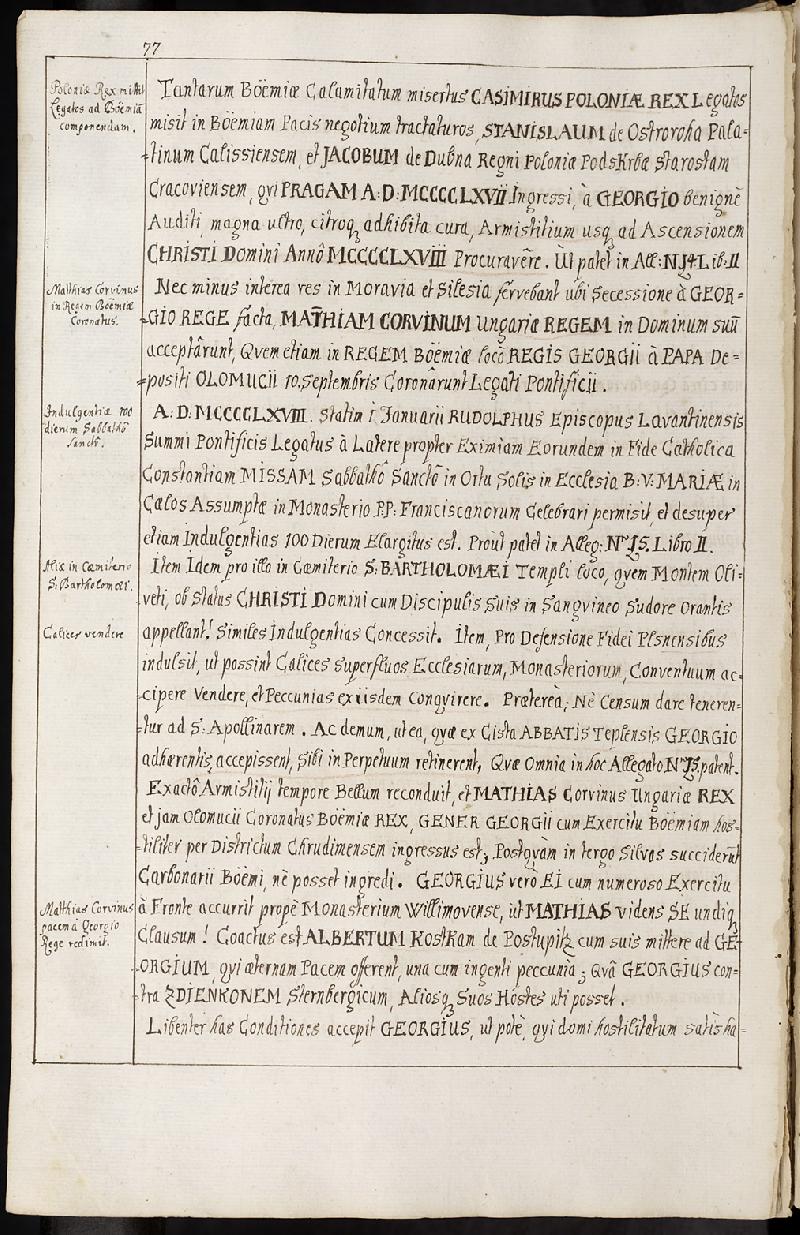 77
Poloniæ Rex mittit
Legatos ad Böëmiã
componendam.
Tantarum Böëmiæ Calamitatum misertus CASIMIRUS POLONIÆ REX Legatos
misit in Böëmiam Pacis negotium tractaturos, STANISLAUM de Ostroroha Pala=
tinum Calissiensem, et JACOBUM de Dubna Regni Poloniæ Podskrba Starostam
Cracoviensem, qvi PRAGAM A: D: MCCCCLXVII Ingressi, à GEORGIO benignè
Auditi, magna ultro, citroq, adhibita cura, Armistitium usq, ad Ascensionem
CHRISTI Domini Annô MCCCCLXVIII Procuravêre. Ut patet in All: N 14 Lib: II
Matthias Corvinus
in Regem Böëmiæ
Coronatus.
Nec minus interea res in Moravia et Silesia fervebant ubi Secessione à GEOR=
GIO REGE facta, MATHIAM CORVINUM Ungariæ REGEM in Dominum suũ
acceptârunt, Qvem etiam in REGEM Böëmiæ locô REGIS GEORGII à PAPA De=
positi OLOMUCII 10. Septembris Coronârunt Legati Pontificii.
Indulgentiæ 100
dierum Sabbathô
Sanctô.
A: D: MCCCCLXVIII. Statim 1 Januarii RUDOLPHUS Episcopus Lavantinensis
Summi Pontificis Legatus à Latere propter Eximiam Eorundem in Fide Catholica
Constantiam MISSAM Sabbathô Sanctô in Ortu Solis in Ecclesia B: V: MARIÆ in
Cælos Assumptæ in Monasterio P.P: Franciscanorum Celebrari permisit, et desuper
etiam Indulgentias 100 Dierum Elargitus est. Prout patet in Alleg: Nro 15. Libro II.
Aliæ in Cæmiterio
S: Bartholomæi.
Item Idem pro illo in Cæmiterio S: BARTHOLOMÆI Templi loco, qvem Montem Oli=
veti, ob status CHRISTI Domini cum Discipulis Suis in Sangvineo Sudore Orantis
Calices vendere
appellant! Similes Indulgentias Concessit. Item, Pro Defensione Fidei Plsnensibus
indulsit, ut possint Calices superfluos Ecclesiarum, Monasteriorum, Conventuum ac=
cipere Vendere, et Peccunias exiisdem Conqvirere. Præterea, Nè Censum dare teneren=
tur ad S: Apollinarem. Ac demum, ut ea, qvæ ex Cista ABBATIS Teplensis GEORGIO
adhærentis accepissent, Sibi in Perpetuum retinerent, Qvæ Omnia in hoc Allegato Nro 15 patent.
Exactô Armistitij tempore Bellum reconduit, et MATHIAS Corvinus Ungariæ REX
et jam Olomucii Coronatus Böëmiæ REX, GENER GEORGII cum Exercitu Böëmiam hos=
tiliter per Districtum Chrudimensem ingressus est; Postqvam in tergo Silvas succiderũt
Carbonarii Böëmi, nè posset ingredi. GEORGIUS verò EI cum numeroso Exercitu
Matthias Corvinus
pacem à Georgio
Rege redimit.
à Fronte accurrit propè Monasterium Willimovense, ut MATHIAS videns SE undiq,
Clausum! Coactus est ALBERTUM Kostkam de Postupitz cum suis mittere ad GE=
ORGIUM, qvi æternam Pacem offerent, una cum ingenti peccunia; Qvâ GEORGIUS con=
tra ZDIENKONEM Sternbergicum, Aliosq, Suos Hostes uti posset.
Libenter has Conditiones accepit GEORGIUS, ut potè, qvi domi hostilitatum satis ha=